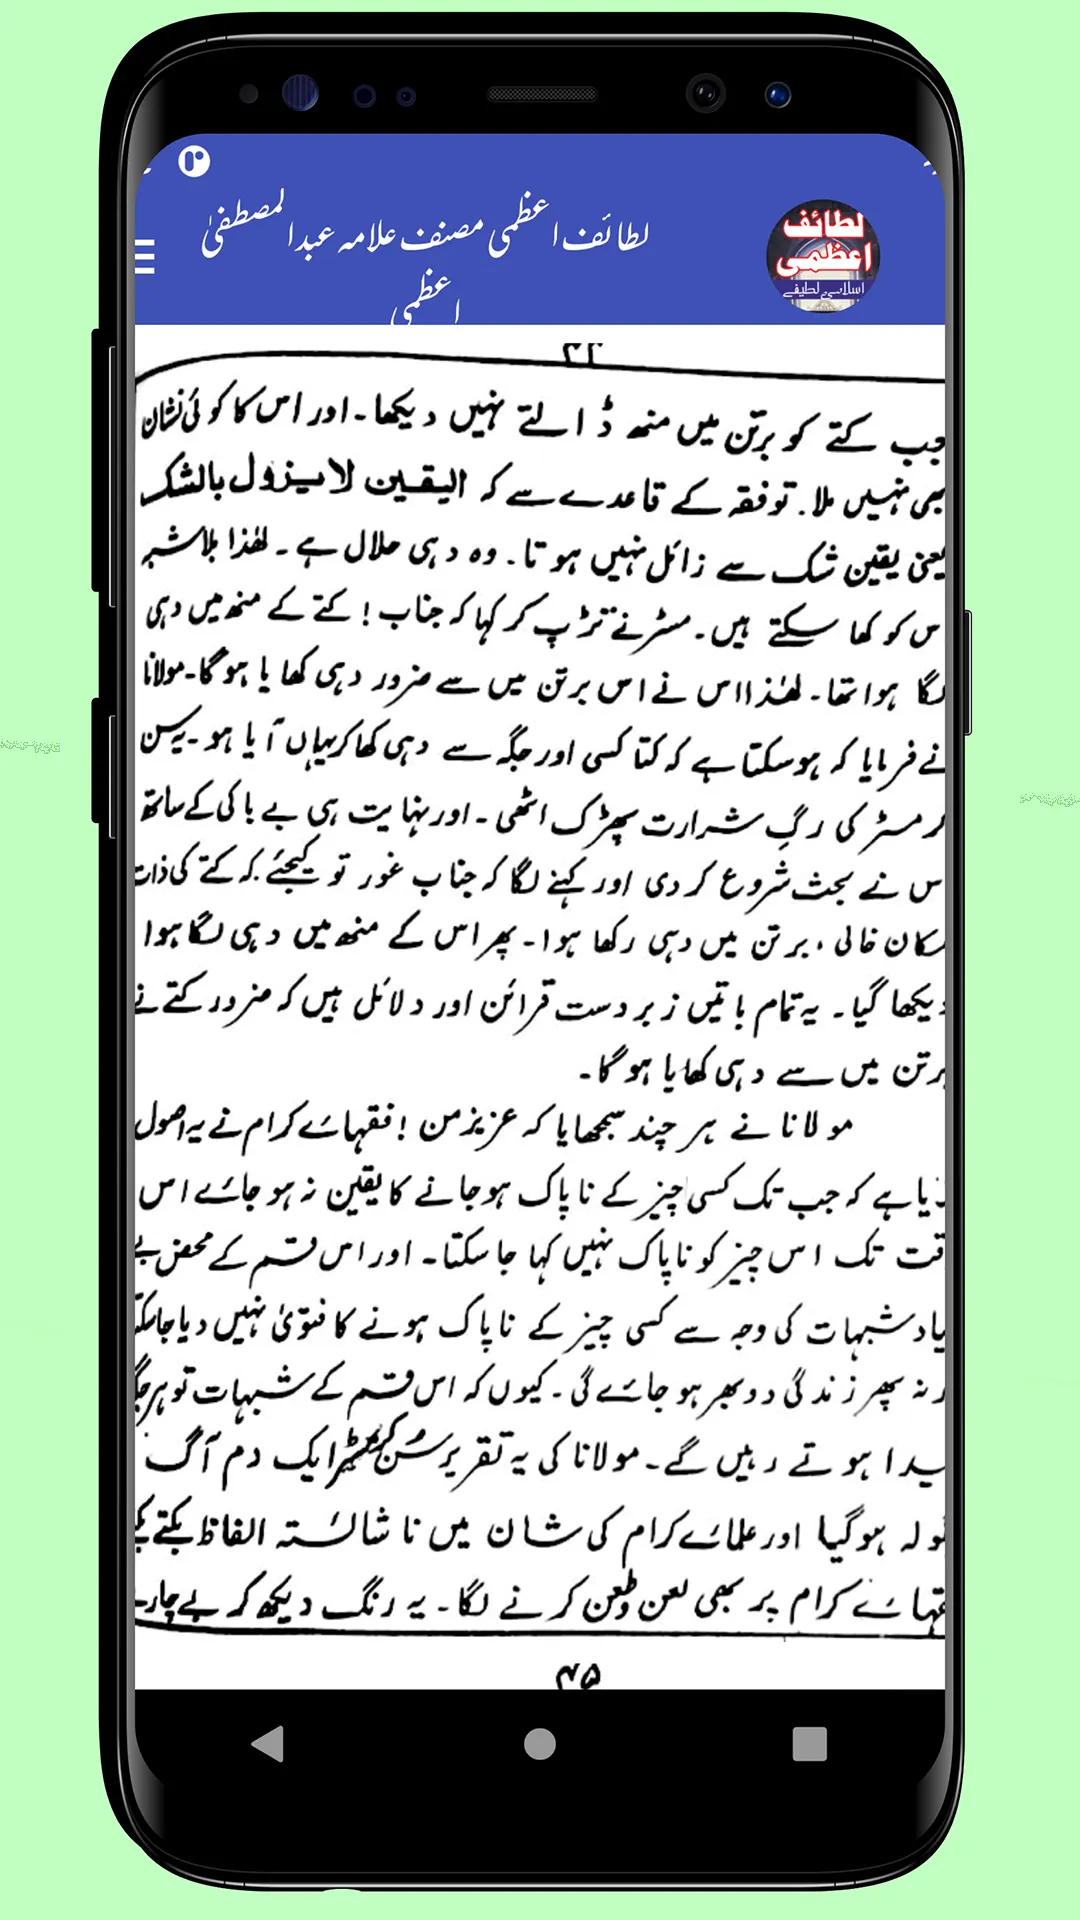 لطائف اعظمی مصنف علامہ عبدالمصطفیٰ
اعظمی
لطائف
اعظمی
اسلامی لطیفے
جب کتے کو برتن میں منھ ڈالتے نہیں دیکھا۔ اور اس کا کوئی نشان
بھی نہیں ملا۔ تو فقہ کے قاعدے سے کہ الیقین لا یزول بالشک
یعنی یقین شک سے زائل نہیں ہوتا۔ وہ دہی حلال ہے۔ لھٰذا بلا شبہ
س کو کھا سکتے ہیں۔ مسٹر نے تڑپ کر کہا کہ جناب! کتے کے منھ میں دہی
لگا ہوا تھا۔ لھٰذا اس نے اس برتن میں سے ضرور دہی کھایا ہوگا۔ مولانا
نے فرمایا کہ ہوسکتا ہے کہ کتا کسی اور جگہ سے دہی کھا کر یہاں آیا ہو۔ یہ سن
ر مسٹر کی رگِ شرارت پھڑک اٹھی۔ اور نہایت ہی بے باکی کے ساتھ
س نے بحث شروع کردی اور کہنے لگا کہ جناب غور تو کیجئے کہ کتے کی ذات
مکان خالی، برتن میں دہی رکھا ہوا۔ پھر اس کے منھ میں دہی لگا ہوا
دیکھا گیا۔ یہ تمام باتیں زبردست قرائن اور دلائل ہیں کہ ضرور کتے نے
برتن میں سے دہی کھایا ہوگا۔
مولانا نے ہر چند سمجھایا کہ عزیز من! فقہائے کرام نے یہ اصول
یا ہے کہ جب تک کسی چیز کے ناپاک ہوجانے کا یقین نہ ہو جائے اس
قت تک اس چیز کو ناپاک نہیں کہا جاسکتا۔ اور اس قسم کے محض بے
یاد شبہات کی وجہ سے کسی چیز کے ناپاک ہونے کا فتویٰ نہیں دیا جاسکتا
ر نہ پھر زندگی دوبھر ہو جائے گی۔ کیوں کہ اس قسم کے شبہات تو ہر جگہ
یدا ہوتے رہیں گے۔ مولانا کی یہ تقریر سن کر مسٹر ایک دم آگ
گولہ ہوگیا اور علمائے کرام کی شان میں ناشائستہ الفاظ بکتے بکتے
قہائے کرام پر بھی لعن وطعن کرنے لگا۔ یہ رنگ دیکھ کر بے چارے
۴۵